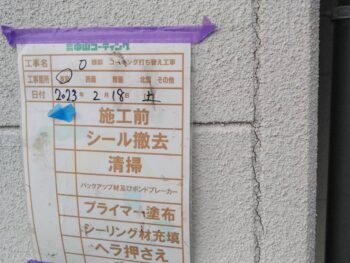 中山コーティング
工事名 コーキング打ち替え工事
工事箇所 西面 北面 その他
日付 2023年 2月 18日 土
施工前
シール撤去
清掃
バックアップ材及びボンドブレーカー
プライマー塗布
シーリング材充填
ヘラ押さえ